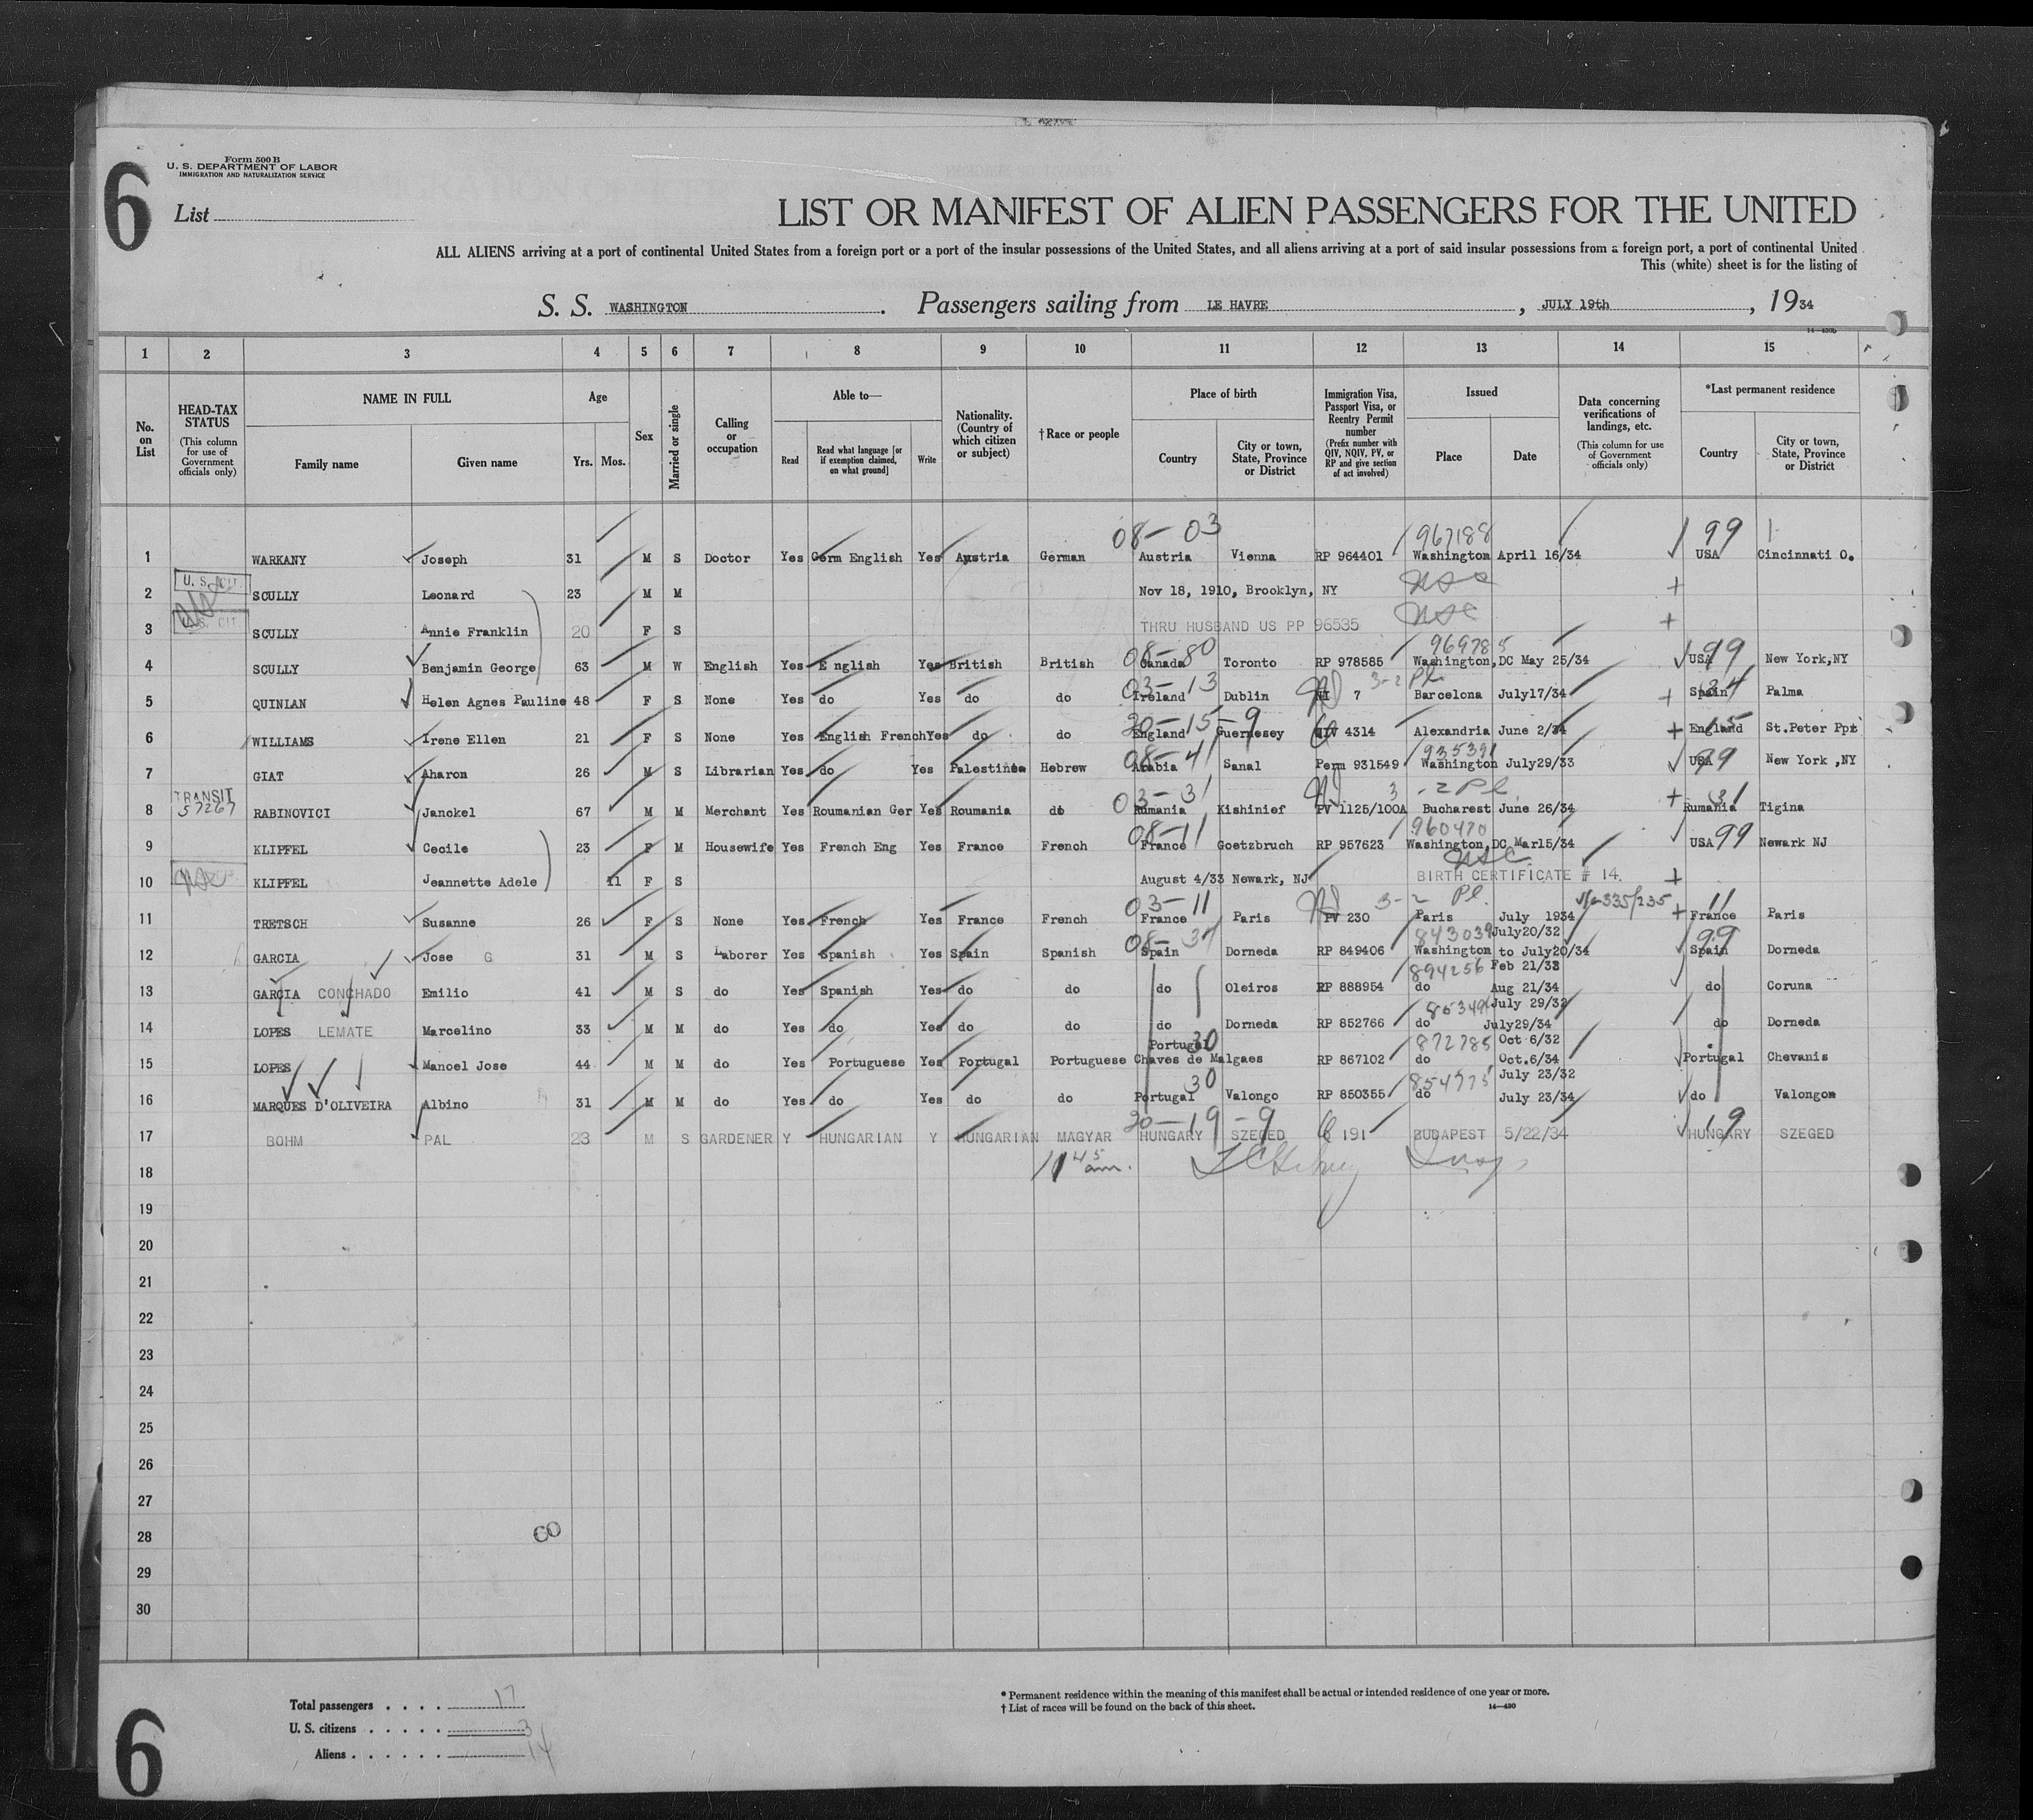 6
Form 500 B
U. S. DEPARTMENT OF LABOR
IMMIGRATION AND NATURALIZATION SERVICE
List
LIST OR MANIFEST OF ALIEN PASSENGERS FOR THE UNITED
ALL ALIENS arriving at a port of continental United States from a foreign port or a port of the insular possessions of the United States, and all aliens arriving at a port of said insular possessions from a foreign port, a port of continental United
This (white) sheet is for the listing of
S. S. WASHINGTON . Passengers sailing from LE HAVRE , JULY 19th , 1934
14—430b
1 2 3 4 5 6 7 8 9 10 11 12 13 14 15
No. on List
HEAD-TAX STATUS (This column for use of Government officials only)
NAME IN FULL
Family name Given name
Age
Yrs. Mos.
Sex
Married or single
Calling or occupation
Able to—
Read Read what language [or if exemption claimed, on what ground] Write
Nationality. (Country of which citizen or subject)
† Race or people
Place of birth
Country City or town, State, Province or District
Immigration Visa, Passport Visa, or Reentry Permit number (Prefix number with QIV, NQIV, PV, or RP and give section of act involved)
Issued
Place Date
Data concerning verifications of landings, etc. (This column for use of Government officials only)
*Last permanent residence
Country City or town, State, Province or District
08-03 967188 99
1 WARKANY Joseph 31 M S Doctor Yes Germ English Yes Austria German Austria Vienna RP 964401 Washington April 16/34 USA Cincinnati O.
U. S. CIT.
2 SCULLY Leonard 23 M M Nov 18, 1910, Brooklyn, NY
U. S. CIT
3 SCULLY Annie Franklin 20 F S THRU HUSBAND US PP 96535
08-80 969785 99
4 SCULLY Benjamin George 63 M W English Yes E nglish Yes British British Canada Toronto RP 978585 Washington,DC May 25/34 USA New York,NY
03-13 3-2 Pl 34
5 QUINLAN Helen Agnes Pauline 48 F S None Yes do Yes do do Ireland Dublin 7 Barcelona July17/34 Spain Palma
20-15-9 15
6 WILLIAMS Irene Ellen 21 F S None Yes English French Yes do do England Guernesey QIV 4314 Alexandria June 2/34 England St.Peter Ppt
08-41 935391 99
7 GIAT Aharon 26 M S Librarian Yes do Yes Palestine Hebrew Arabia Sanal Perm 931549 Washington July29/33 USA New York ,NY
TRANSIT 57267 03-31 3-2 Pl. 31
8 RABINOVICI Janckel 67 M M Merchant Yes Roumanian Ger Yes Roumania do Rumania Kishinief PV 1125/100A Bucharest June 26/34 Rumania Tigina
08-11 960470 99
9 KLIPFEL Cecile 23 F M Housewife Yes French Eng Yes France French France Goetzbruch RP 957623 Washington,DC Mar15/34 USA Newark NJ
10 KLIPFEL Jeannette Adele 11 F S August 4/33 Newark, NJ BIRTH CERTIFICATE # 14.
03-11 3-2 Pl. 335/235 11
11 TRETSCH Susanne 26 F S None Yes French Yes France French France Paris PV 230 Paris July 1934 France Paris
08-34 843039 July20/32 99
12 GARCIA Jose G 31 M S Laborer Yes Spanish Yes Spain Spanish Spain Dorneda RP 849406 Washington to July20/34 Spain Dorneda
894256 Feb 21/33
13 GARCIA CONCHADO Emilio 41 M S do Yes Spanish Yes do do do Oleiros RP 888954 do Aug 21/34 do Coruna
85349 July 29/32
14 LOPES LEMATE Marcelino 33 M M do Yes do Yes do do do Dorneda RP 852766 do July29/34 do Dorneda
Portugal 30 872785 Oct 6/32
15 LOPES Manoel Jose 44 M M do Yes Portuguese Yes Portugal Portuguese Chaves de Malgaes RP 867102 do Oct.6/34 Portugal Chevanis
30 854775 July 23/32
16 MARQUES D'OLIVEIRA Albino 31 M M do Yes do Yes do do Portugal Valongo RP 850355 do July 23/34 do Valongo
20-19-9 19
17 BOHM PAL 23 M S GARDENER Y HUNGARIAN Y HUNGARIAN MAGYAR HUNGARY SZEGED 191 BUDAPEST 5/22/34 HUNGARY SZEGED
18 11 45 am.
19
20
21
22
23
24
25
26
27
28
29
30
Total passengers . . . . 17
U. S. citizens . . . . . 3
Aliens . . . . . . 14
* Permanent residence within the meaning of this manifest shall be actual or intended residence of one year or more.
† List of races will be found on the back of this sheet. 14—430
6